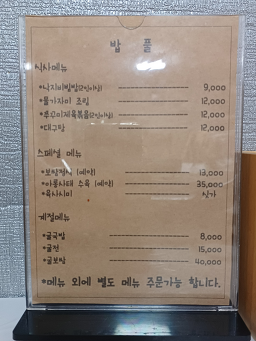 밥 플
식사메뉴
*낙지비빔밥(2인이상) 9,000
*물가자미 조림 12,000
*쭈꾸미제육볶음(2인이상) 12,000
*대구탕 12,000
스페셜 메뉴
*보쌈정식 (예약) 13,000
*아롱사태 수육 (예약) 35,000
*육사시미 싯가
계절메뉴
*굴국밥 8,000
*굴전 15,000
*굴보쌈 40,000
*메뉴 외에 별도 메뉴 주문가능 합니다.